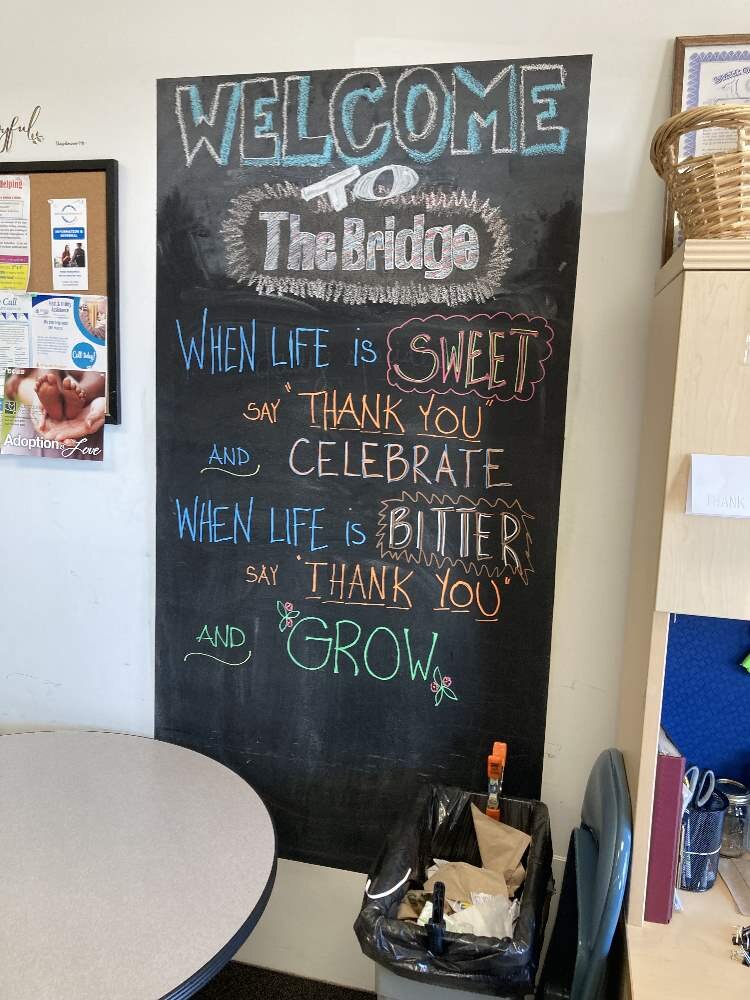 WELCOME
TO
The Bridge
WHEN LIFE is SWEET
SAY "THANK YOU"
AND CELEBRATE
WHEN LIFE is BITTER
SAY "THANK YOU"
AND GROW
Helping
Call
Call today!
Adoption is Love
THANK